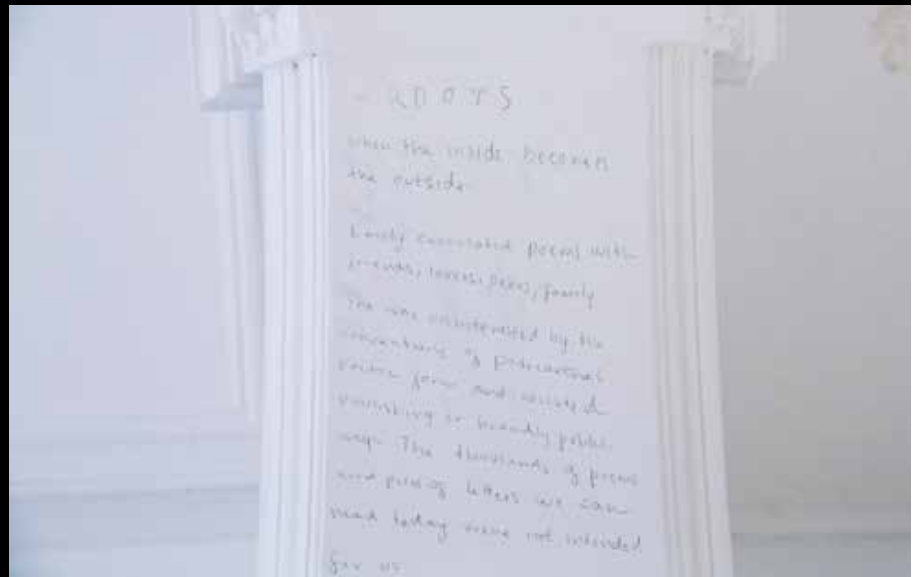 when the inside becomes
the outside
circulated poems with
friends, family
She was uninterested by the
conventions of patriarchal
form and resisted
publishing in broadly public
ways The thousands of poems
and pile of letters we can
read today were not intended
for us